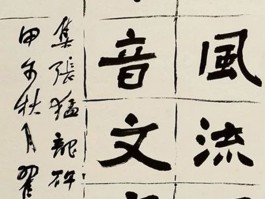 風流
音文
集張猛龍碑
甲午秋月